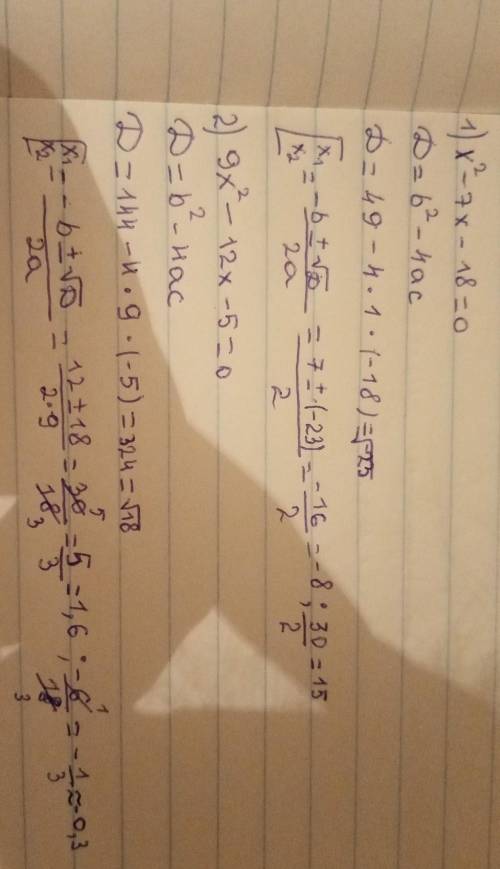 1) x² - 7x - 18 = 0
D = b² - 4ac
D = 49 - 4 · 1 · (-18) = √-25
[x₁ x₂ = (-b ± √D)/2a = (7 ± (-23))/2 = -16/2 = -8 ; 30/2 = 15
2) 9x² - 12x - 5 = 0
D = b² - 4ac
D = 144 - 4 · 9 · (-5) = 324 = √18
[x₁ x₂ = (-b ± √D)/2a = (12 ± 18)/(2·9) = 30⁵/18₃ = 5/3 = 1,6 ; -6¹/18₃ = -1/3 ≈ -0,3